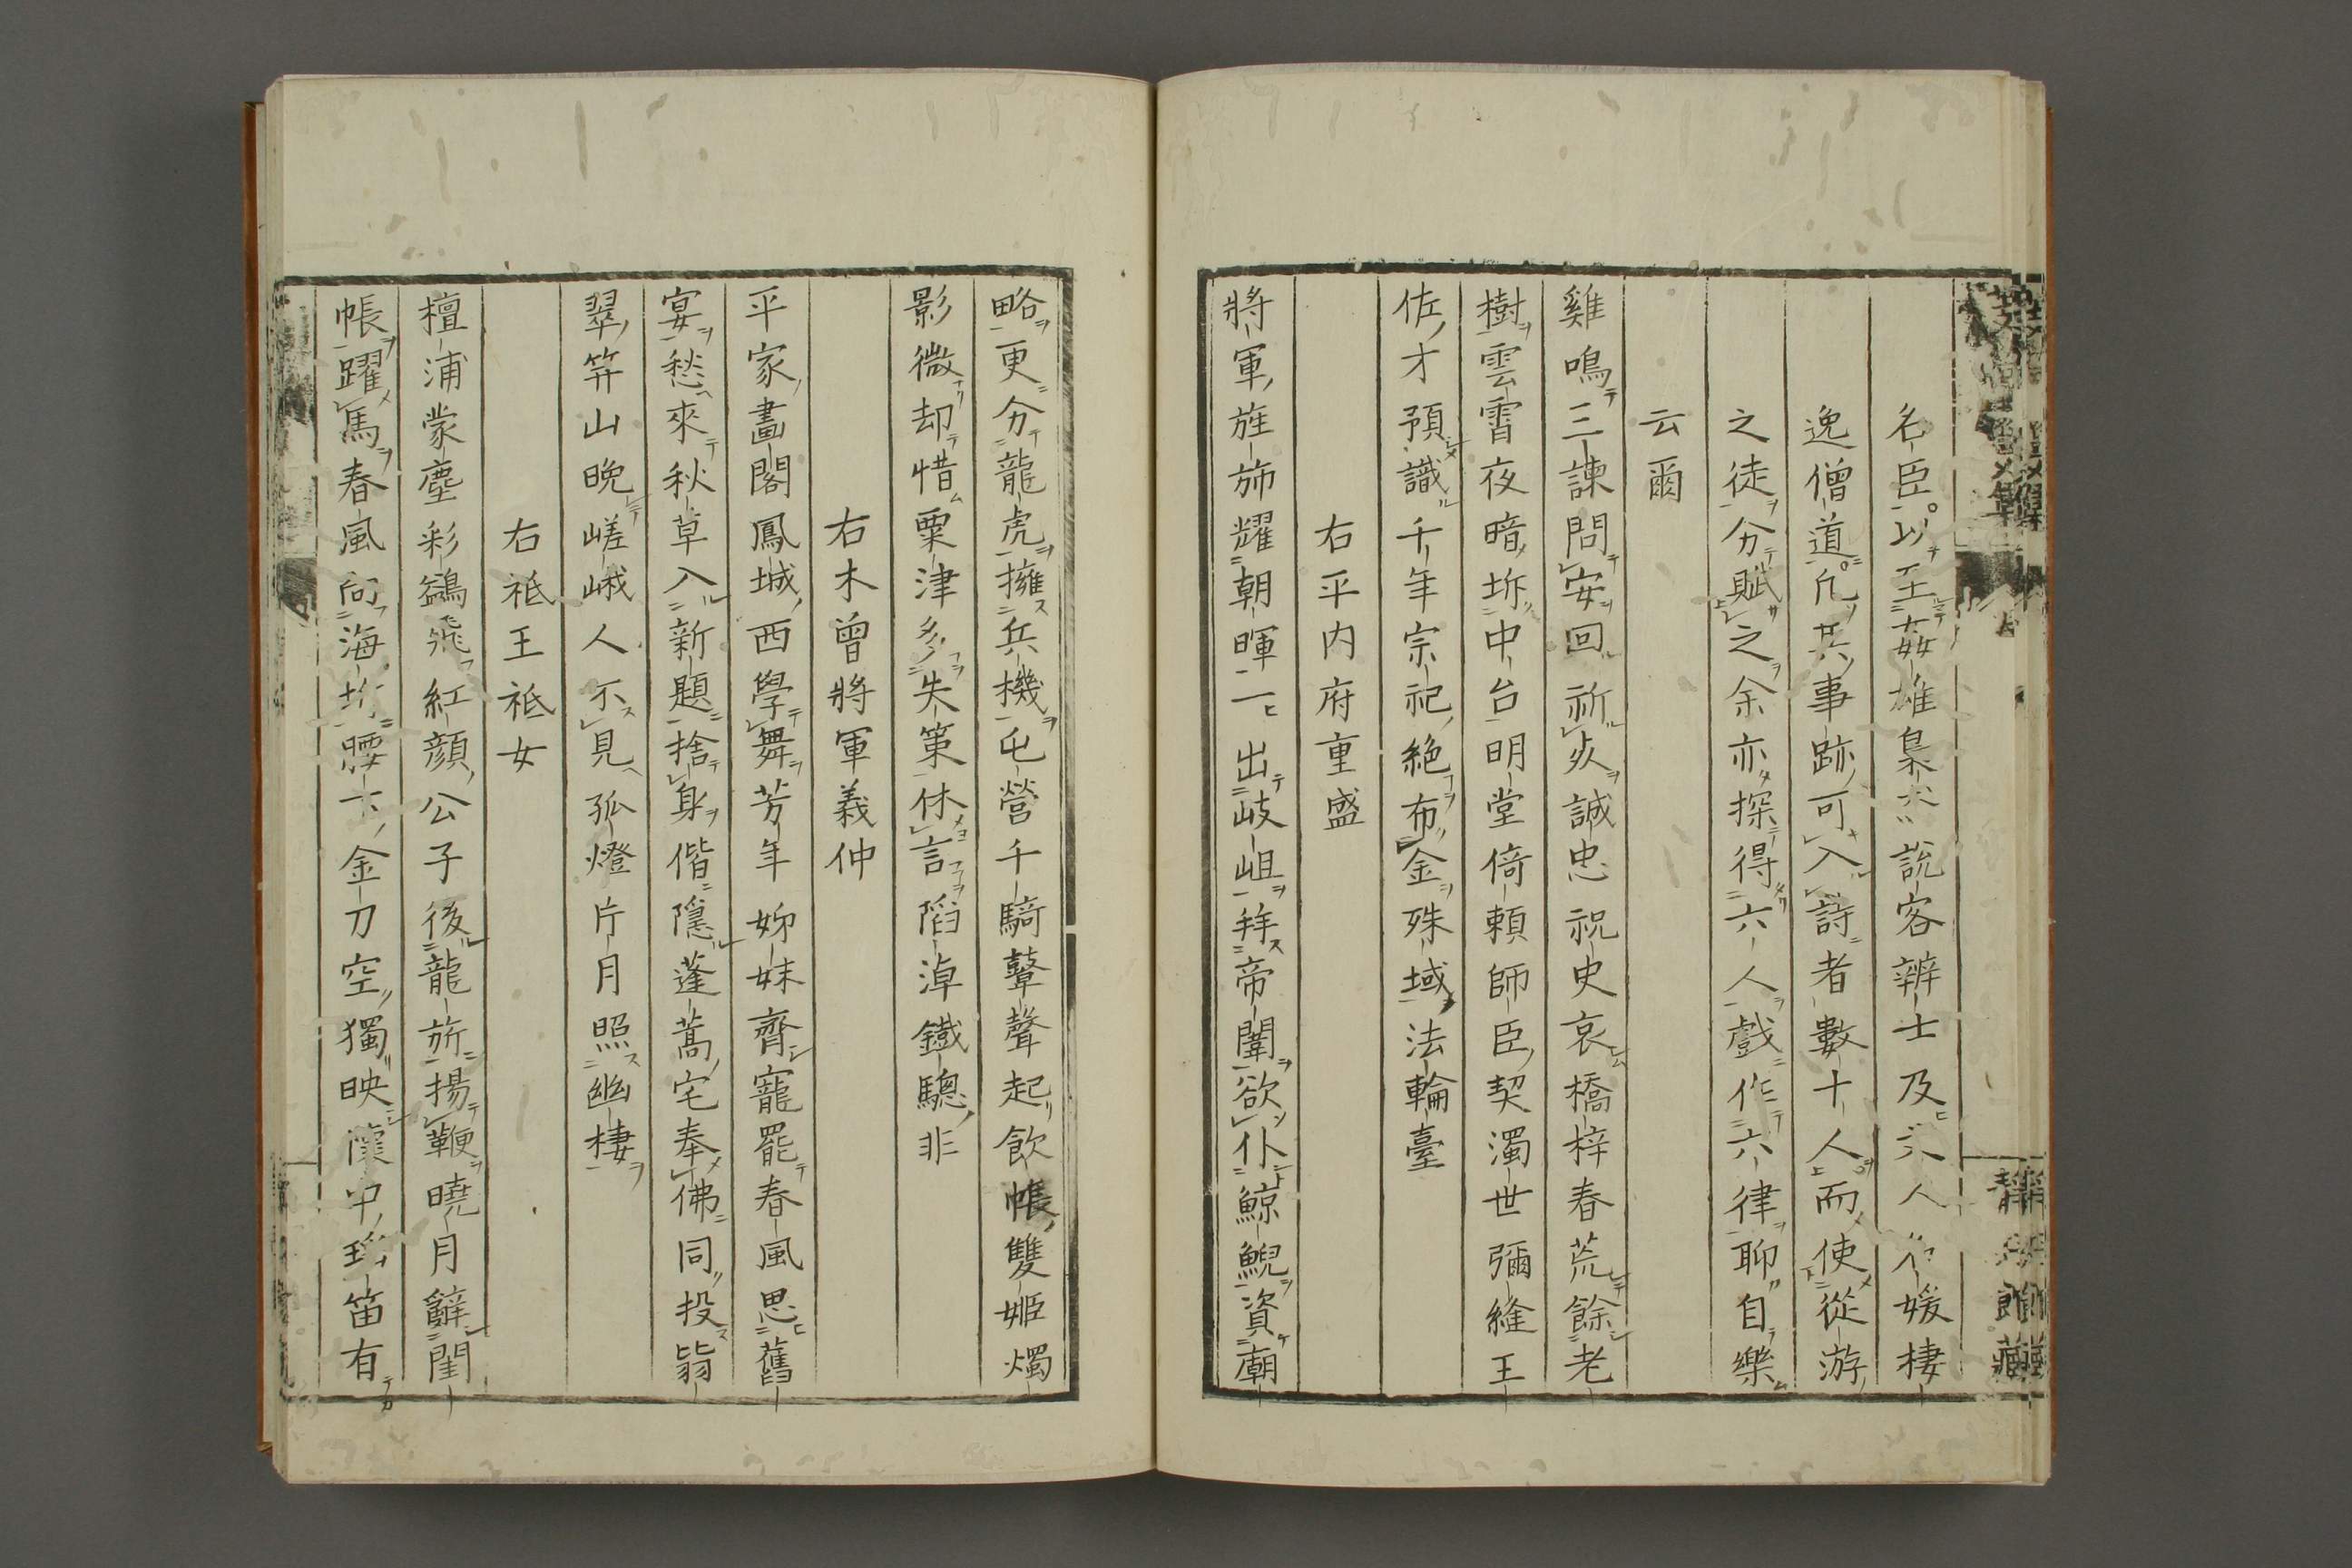 名臣以至姦雄梟 說客辨士及 人 媛棲
逸僧道凡其事跡可入詩者數十人而使從游
之徒分賦之余亦探得六人戲作六律聊自樂
云爾
雞鳴三諫問安回祈 誠忠祝史哀橋梓春荒餘老
樹雲霄夜暗坼中台明堂倚賴師臣契濁世彌縫王
佐才預識千年宗祀絕布金殊域法輪臺
右平内府重盛
將軍旌斾耀朝暉一出岐岨拜帝闈欲仆鯨鯢資廟
略更分龍虎擁兵機屯營千騎鼙聲起飲帳雙姬燭
影微却惜粟津多失策休言陷淖鐵驄非
右木曾將軍義仲
平家畫閣鳳城西學舞芳年姊妹齊寵罷春風思舊
宴愁來秋草入新題捨身偕隱蓬蒿宅奉佛同投翡
翠笄山晩嵯峨人不見孤燈片月照幽棲
右祗王祗女
檀浦蒙塵彩鷁飛紅顏公子後龍旂揚鞭曉月辭閨
帳躍馬春風向海 腰下金刀空獨映 中 笛有